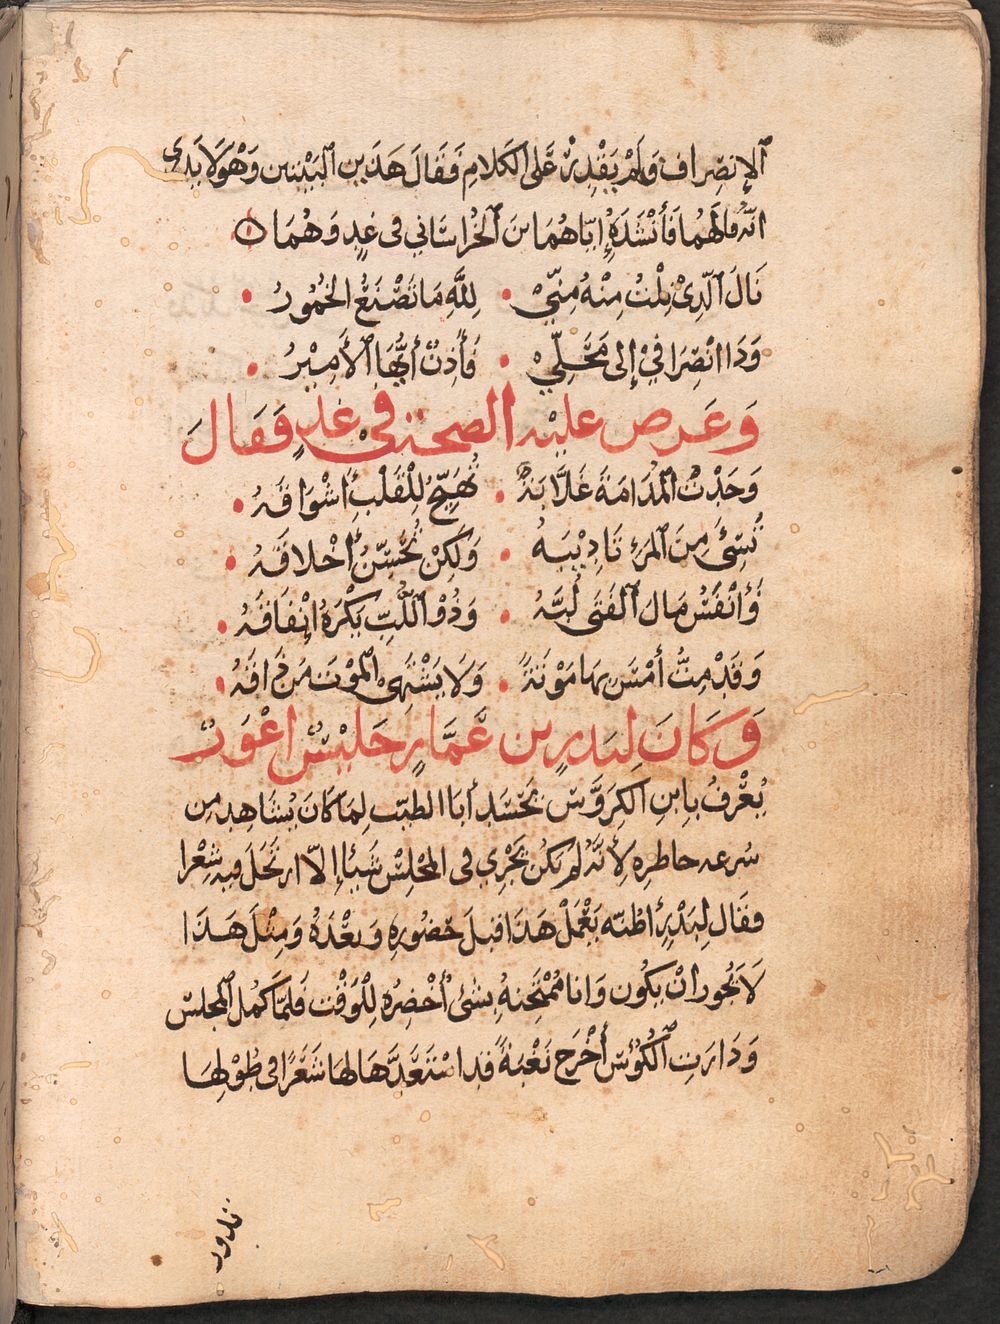 الإنصراف ولم يقدر على الكلام فقال هذين البيتين وهو لا يدري
انه قالهما فأنشده إياهما بن الخراساني في غد وهما
نَالَ الَّذِي نِلْتُ مِنْهُ مِنِّي • لِلَّهِ مَا تَصْنَعُ الخُمُورُ •
وَذَا انْصِرَافِي إِلى مَحَلِّي • فَأَذِنْ أَيُّهَا الأَمِيْرُ •
وَعَرض عليه الصحبة في غدٍ فَقَالَ
وَجَدْتُ المُدَامَةَ غَلَّابَةً • تُهَيِّجُ لِلْقَلْبِ أَشْوَاقَهُ •
تُسِئُ مِنَ المَرْءِ تَادِيْبَهُ • وَلَكِنْ تُحَسِّنُ أَخْلاقَهُ •
وَأَنْفَسُ مَال الفَتَى لُبُّهُ • وَذُوْ اللُّبِّ يَكْرَهُ إِنْفَاقَهُ •
وَقَدْ مِتُّ أَمْسِ بِهَا مَوْتَةً • وَلَا يَشْتَهِي المَوْتَ مَنْ ذَاقَهُ •
وَكَانَ لِبَدْرِ بن عَمَّارٍ جَلِيْسٌ اعْوَر
يُعْرَفُ بِابنِ الكَرَوَّسِ يَحْسُد أبَا الطيّب لِمَا كَانَ يُشاهِد مِن
سُرعه خاطِره لِأَنَّهُ لم يَكُن يَجْرِي في المجْلِسْ شَيْأ إِلّا ارتَجَلَ فيه شِعْرا
فقَال لِبَدْرٍ أظنّه يَعْمَلْ هَذَا قبل حضُورِهِ وَبعْدَهُ وَمِثْلَ هَذَا
لَا يَجُوز انْ يكُون وَانا مُمْتَحِنهُ بِشَئٍ أُحْضِرُهُ لِلْوَقْت فَلمّا كمُل المجلس
وَدَارَتِ الكُؤسُ أَخْرَج لُعْبَةً قد اسْتَعَدَّهَا لهَا شَعْرًا في طُوْلِهَا
تدور